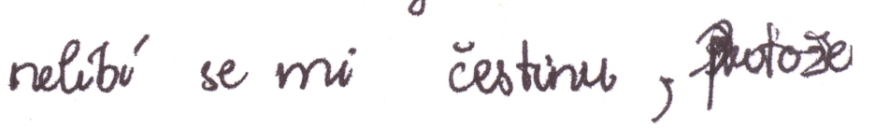 nelíbí se mi čestinu , protože